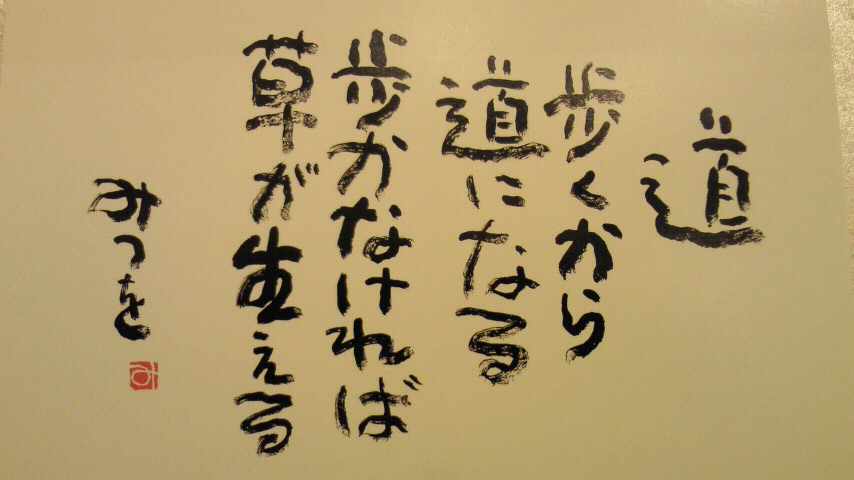 道
歩くから
道になる
歩かなければ
草が生える
みつを
み